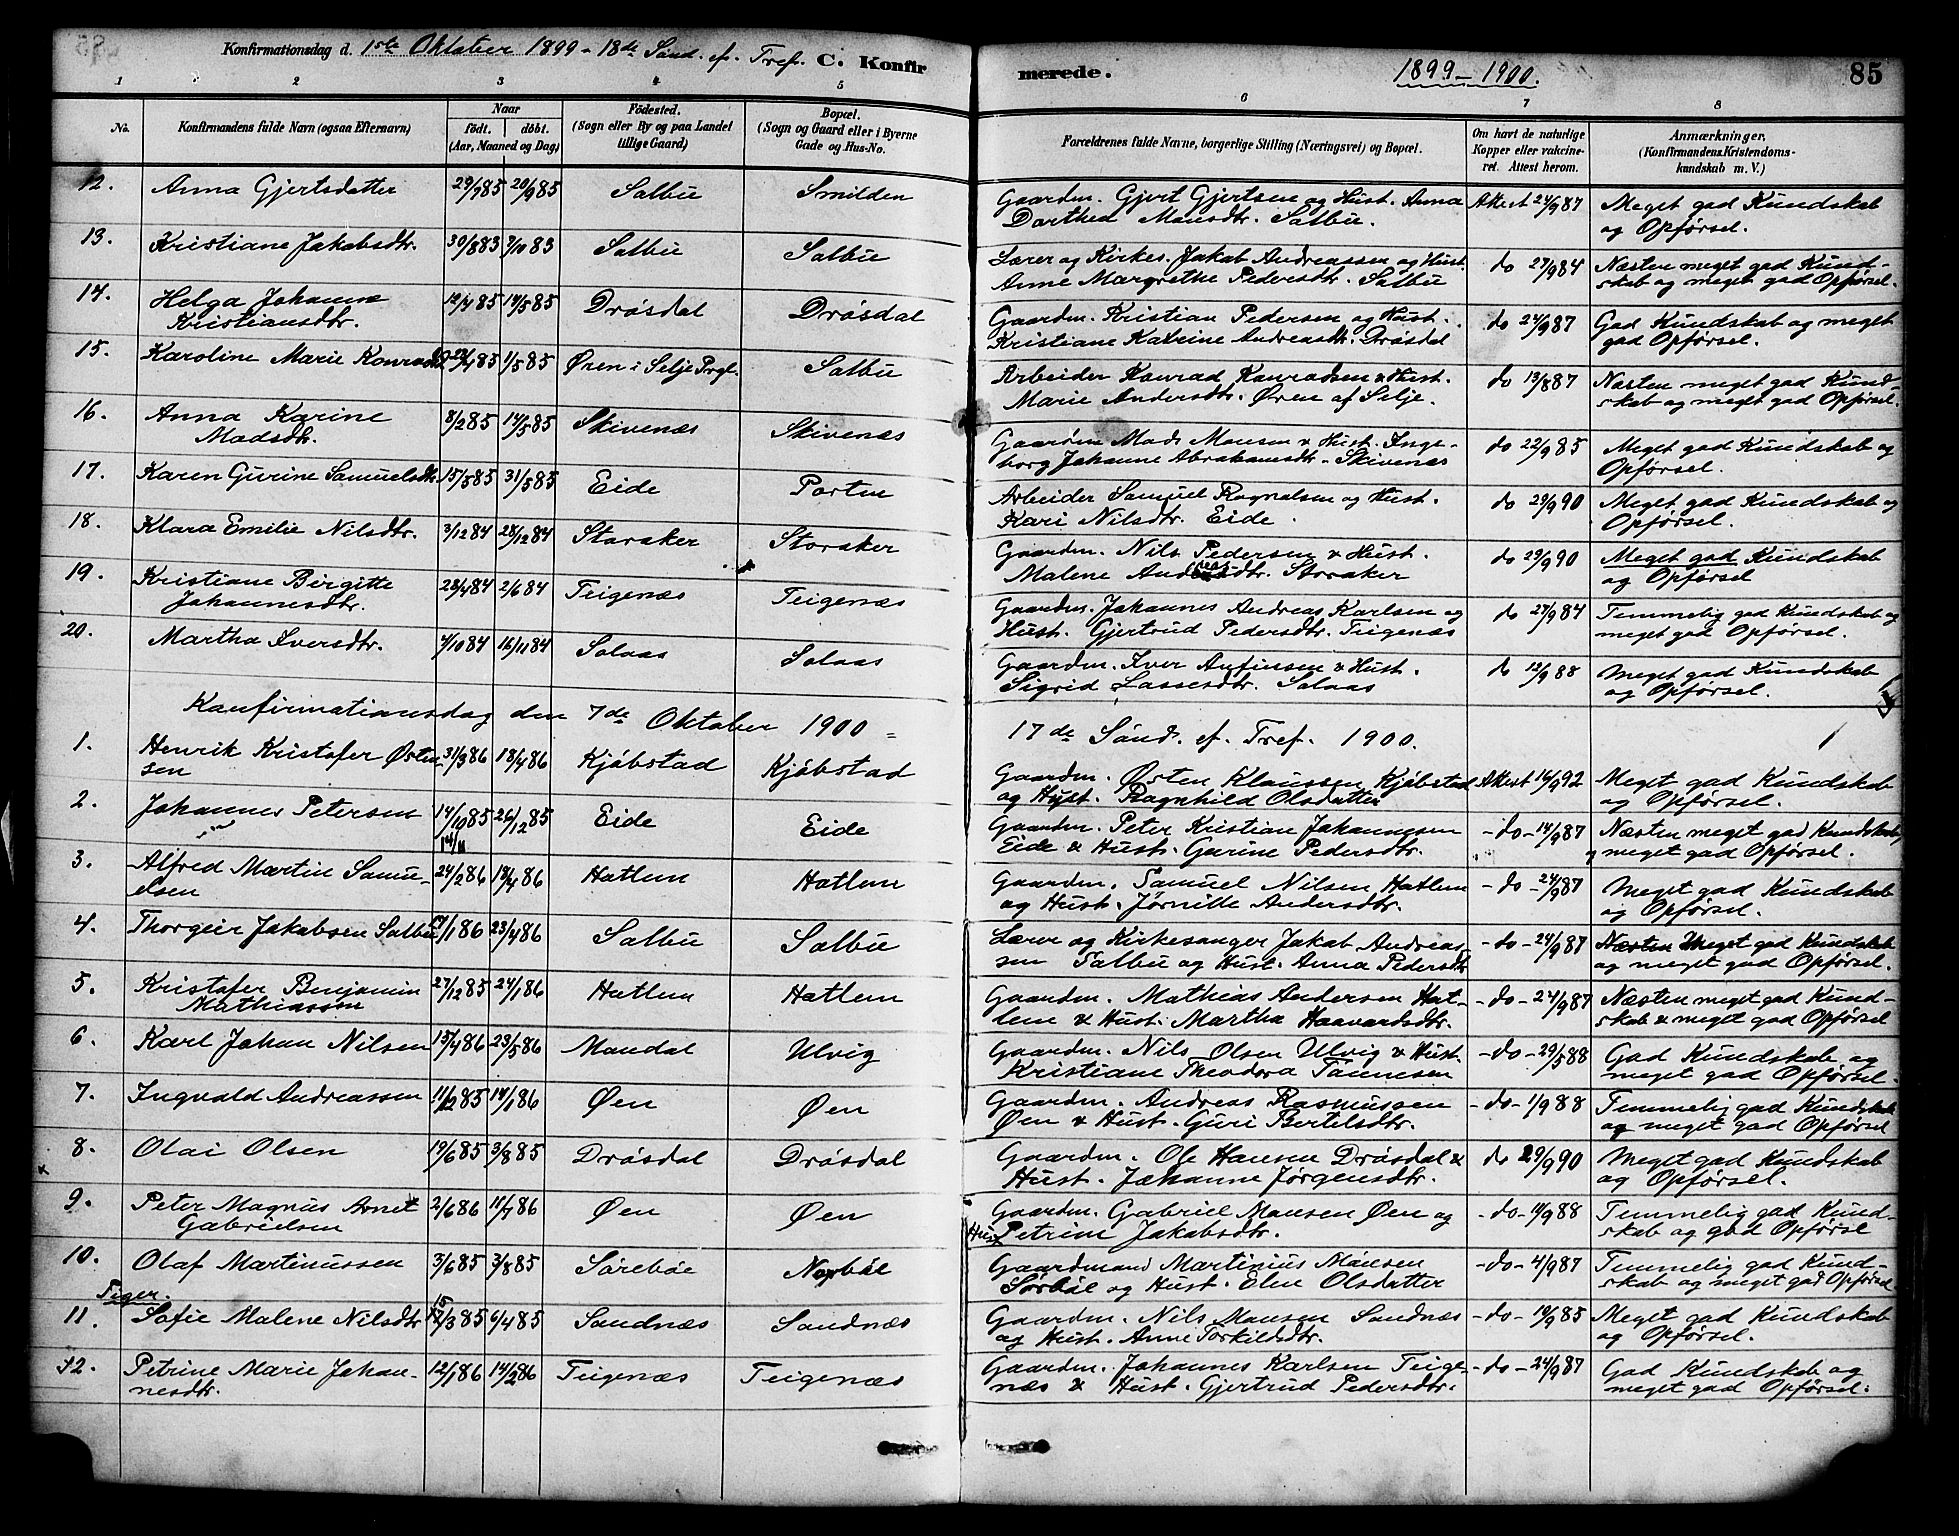 Konfirmationsdag d. 1ste Oktober 1899 - 18de Sønd. ef. Tref. C. Konfirmerede. 1899-1900. 85
1 2 3 4 5 6 7 8
No. Konfirmandens fulde Navn (ogsaa Efternavn) Naar født. döbt. (Aar, Maaned og Dag) Födested. (Sogn eller By og paa Landet tillige Gaard) Bopæl. (Sogn og Gaard eller i Byerne Gade og Hus-No. Forældrenes fulde Navne, borgerlige Stilling (Næringsvei) og Bopæl. Om havt de naturlige Kopper eller vakcineret. Attest herom. Anmærkninger. (Konfirmandens Kristendomskundskab m. V.)
12. Anna Gjertsdatter 29/7 85 20/9 85 Salbu Smilden Gaardm. Gjert Gjertsen og Hust. Anna Dorthea Monsdtr. Salbu. Attest 24/9 87 Meget god Kundskab og Opførsel.
13. Kristiane Jakobsdtr. 30/8 83 7/10 83 Salbu Salbu Lærer og Kirkes. Jakob Andreassen og Hust. Anne Margrethe Pedersdtr. Salbu do 27/9 84 Næsten meget god Kundskab og meget god Opførsel.
14. Helga Johanna Kristiansdtr. 12/4 85 14/5 85 Drösdal Drösdal Gaardm. Kristian Pedersen og Hust. Kristiane Katrine Andreasdtr. Drösdal do 24/9 87 God Kundskab og meget god Opførsel.
15. Karoline Marie Konradsd. /4 85 1/5 85 Øren i Selje Prgl. Salbu Arbeider Konrad Konradsen & Hust. Marie Andersdtr. Øren af Selje. do 13/8 87 Næsten meget god Kundskab og meget god Opførsel.
16. Anna Karine Madsdtr. 8/2 85 14/5 85 Skivenæs Skivenæs Gaardm Mads Monsen & Hust. Ingeborg Johanne Abrahamsdtr. Skivenæs do 22/9 85 Meget god Kundskab og Opførsel.
17. Karen Gurine Samuelsdtr. 15/5 85 31/5 85 Eide Porten Arbeider Samuel Ragnalsen og Hust. Kari Nilsdtr. Eide. do 29/9 90 Meget god Kundskab og Opførsel.
18. Klara Emilie Nilsdtr. 3/12 84 28/12 84 Storaker Storaker Gaardm. Nils Pedersen & Hust. Malene Andreasdtr. Storaker do 29/9 90 Meget god Kundskab og Opførsel
19. Kristiane Birgitte Johannesdtr. 28/4 84 2/6 84 Teigenæs Teigenæs Gaardm. Johannes Andreas Karlsen og Hust. Gjertrud Pedersdtr. Teigenæs do 27/9 84 Temmelig god Kundskab og meget god Opførsel.
20. Martha Iversdtr. 4/10 84 16/11 84 Solaas Solaas Gaardm. Iver Anfinsen & Hust. Sigrid Lassesdtr. Solaas do 12/9 88 Meget god Kundskab og Opførsel.
Konfirmationsdag den 7de Oktober 1900 = 17de Sønd. ef. Tref. 1900.
1. Henrik Kristofer Østensen 31/3 86 18/4 86 Kjöbstad Kjöbstad Gaardm. Østen Klaussen Kjöbstad og Hust. Ragnhild Olsdatter Attest 16/9 92 Meget god Kundskab og Opførsel.
2. Johannes Petersen 14/10 85 14/11 26/12 85 Eide Eide Gaardm. Peter Kristian Johannesen Eide & Hust. Gurine Pedersdtr. -do- 14/9 87 Næsten meget god Kundskab og meget god Opførsel.
3. Alfred Martin Samuelsen 24/2 86 18/4 86 Hatlem Hatlem Gaardm. Samuel Nilsen Hatlem og Hust. Jørnille Andersdtr. -do- 24/9 87 Meget god Kundskab og Opførsel.
4. Thorgeir Jakobsen Salbu /1 86 23/4 86 Salbu Salbu Lærer og Kirkesanger Jakob Andreassen Salbu og Hust. Anna Pedersdtr -do- 24/9 87 Næsten Meget god Kundskab og meget god Opførsel.
5. Kristofer Benjamin Mathiassen 27/12 85 24/1 86 Hatlem Hatlem Gaardm. Mathias Andersen Hatlem & Hust. Martha Haavardsdtr. -do- 24/9 87 Næsten meget god Kundskab & meget god Opførsel
6. Karl Johan Nilsen 15/4 86 23/5 86 Mandal Ulvig Gaardm. Nils Olsen Ulvig & Hust. Kristiane Theodora Tønnesen -do- 29/5 88 God Kundskab og meget god Opførsel.
7. Ingvald Andreassen 11/12 85 14/1 86 Øen Øen Gaardm. Andreas Rasmussen Øen & Hust. Guri Bertelsdtr. -do- 1/9 88 Temmelig god Kundskab og meget god Opførsel
8. Olai Olsen 19/6 85 3/8 85 Drösdal Drösdal Gaardm. Ole Hansen Drösdal & Hust. Johanne Jørgensdtr. do 29/9 90 Meget god Kundskab og Opførsel.
9. Peter Magnus Arnet Gabrielsen 2/6 86 11/7 86 Øen Øen Gaardm. Gabriel Monsen Øen og Hust Petrine Jakobsdtr. -do- 14/9 88 Temmelig god Kundskab og god Opførsel
10. Olaf Martinussen 3/6 85 3/8 85 Sörebøe Norbøe Gaardmand Martinius Mønsen Sørbøe og Hust. Elen Olsdatter -do- 4/9 87 Temmelig god Kundskab og meget god Opførsel
Piger.
11. Sofie Malene Nilsdtr 15/3 85 6/4 85 Sandnæs Sandnæs Gaardm. Nils Monsen Sandnæs og Hust. Anne Torkildsdtr. -do- 10/9 85 Meget god Kundskab og Opførsel.
12. Petrine Marie Johannesdtr. 12/1 86 14/2 86 Teigenæs Teigenæs Gaardm. Johannes Karlsen Teigenæs & Hust. Gjertrud Pedersdtr. -do- 24/9 87 God Kundskab og meget god Opførsel.